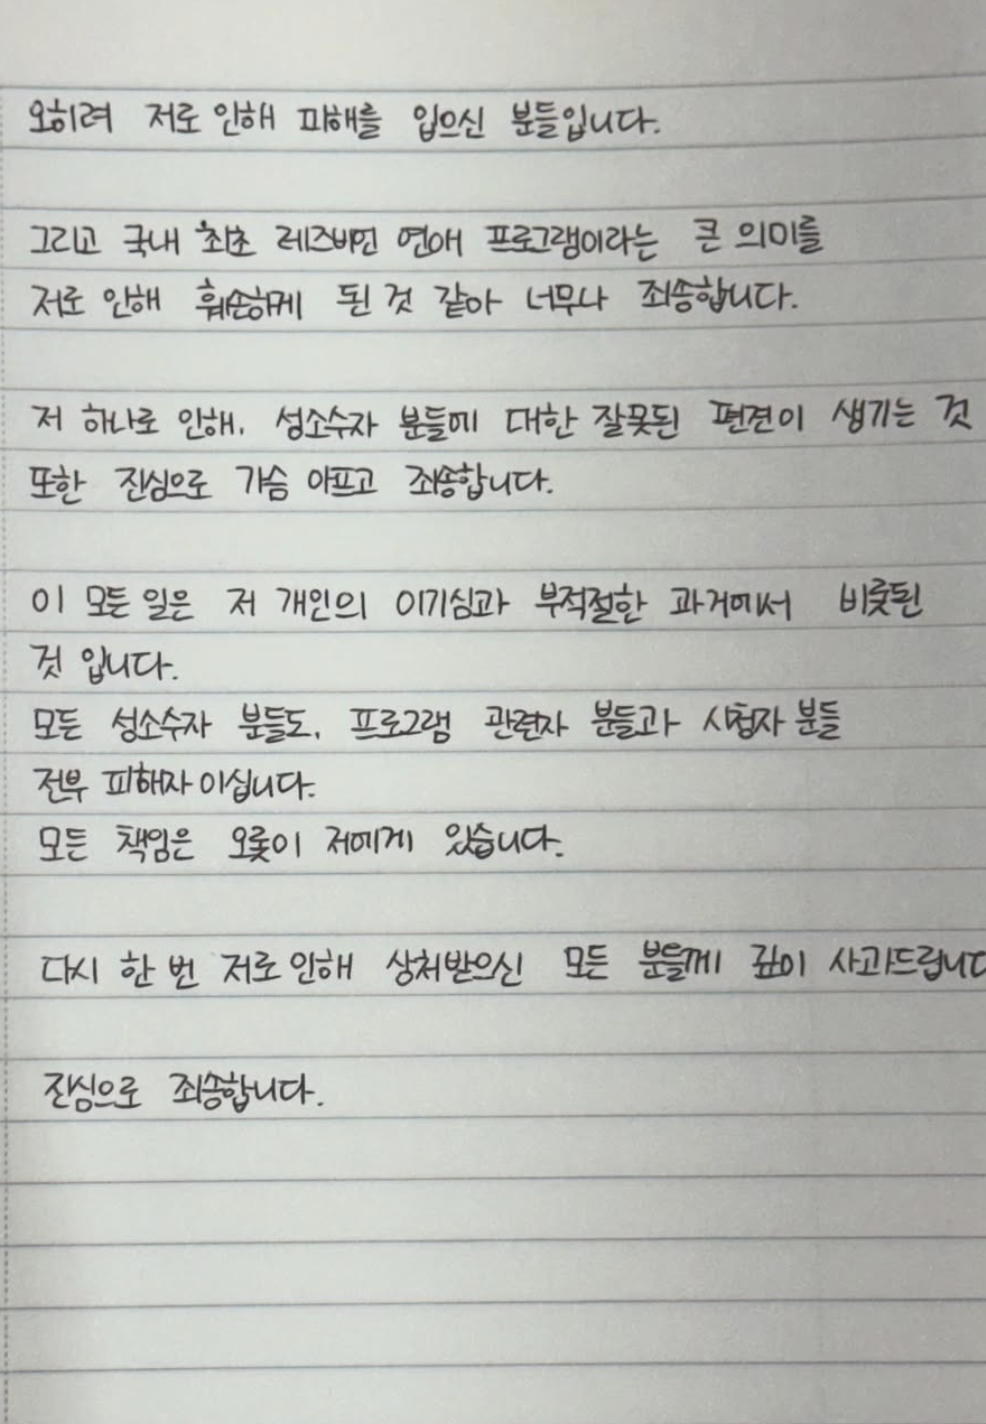 오히려 저로 인해 피해를 입으신 분들입니다.
그리고 국내 최초 레즈비언 연애 프로그램이라는 큰 의미를
저로 인해 훼손하게 된 것 같아 너무나 죄송합니다.
저 하나로 인해, 성소수자 분들에 대한 잘못된 편견이 생기는 것
또한 진심으로 가슴 아프고 죄송합니다.
이 모든 일은 저 개인의 이기심과 부적절한 과거에서 비롯된
것 입니다.
모든 성소수자 분들도, 프로그램 관련자 분들과 시청자 분들
전부 피해자 이십니다.
모든 책임은 오롯이 저에게 있습니다.
다시 한 번 저로 인해 상처받으신 모든 분들께 깊이 사과드립니다
진심으로 죄송합니다.